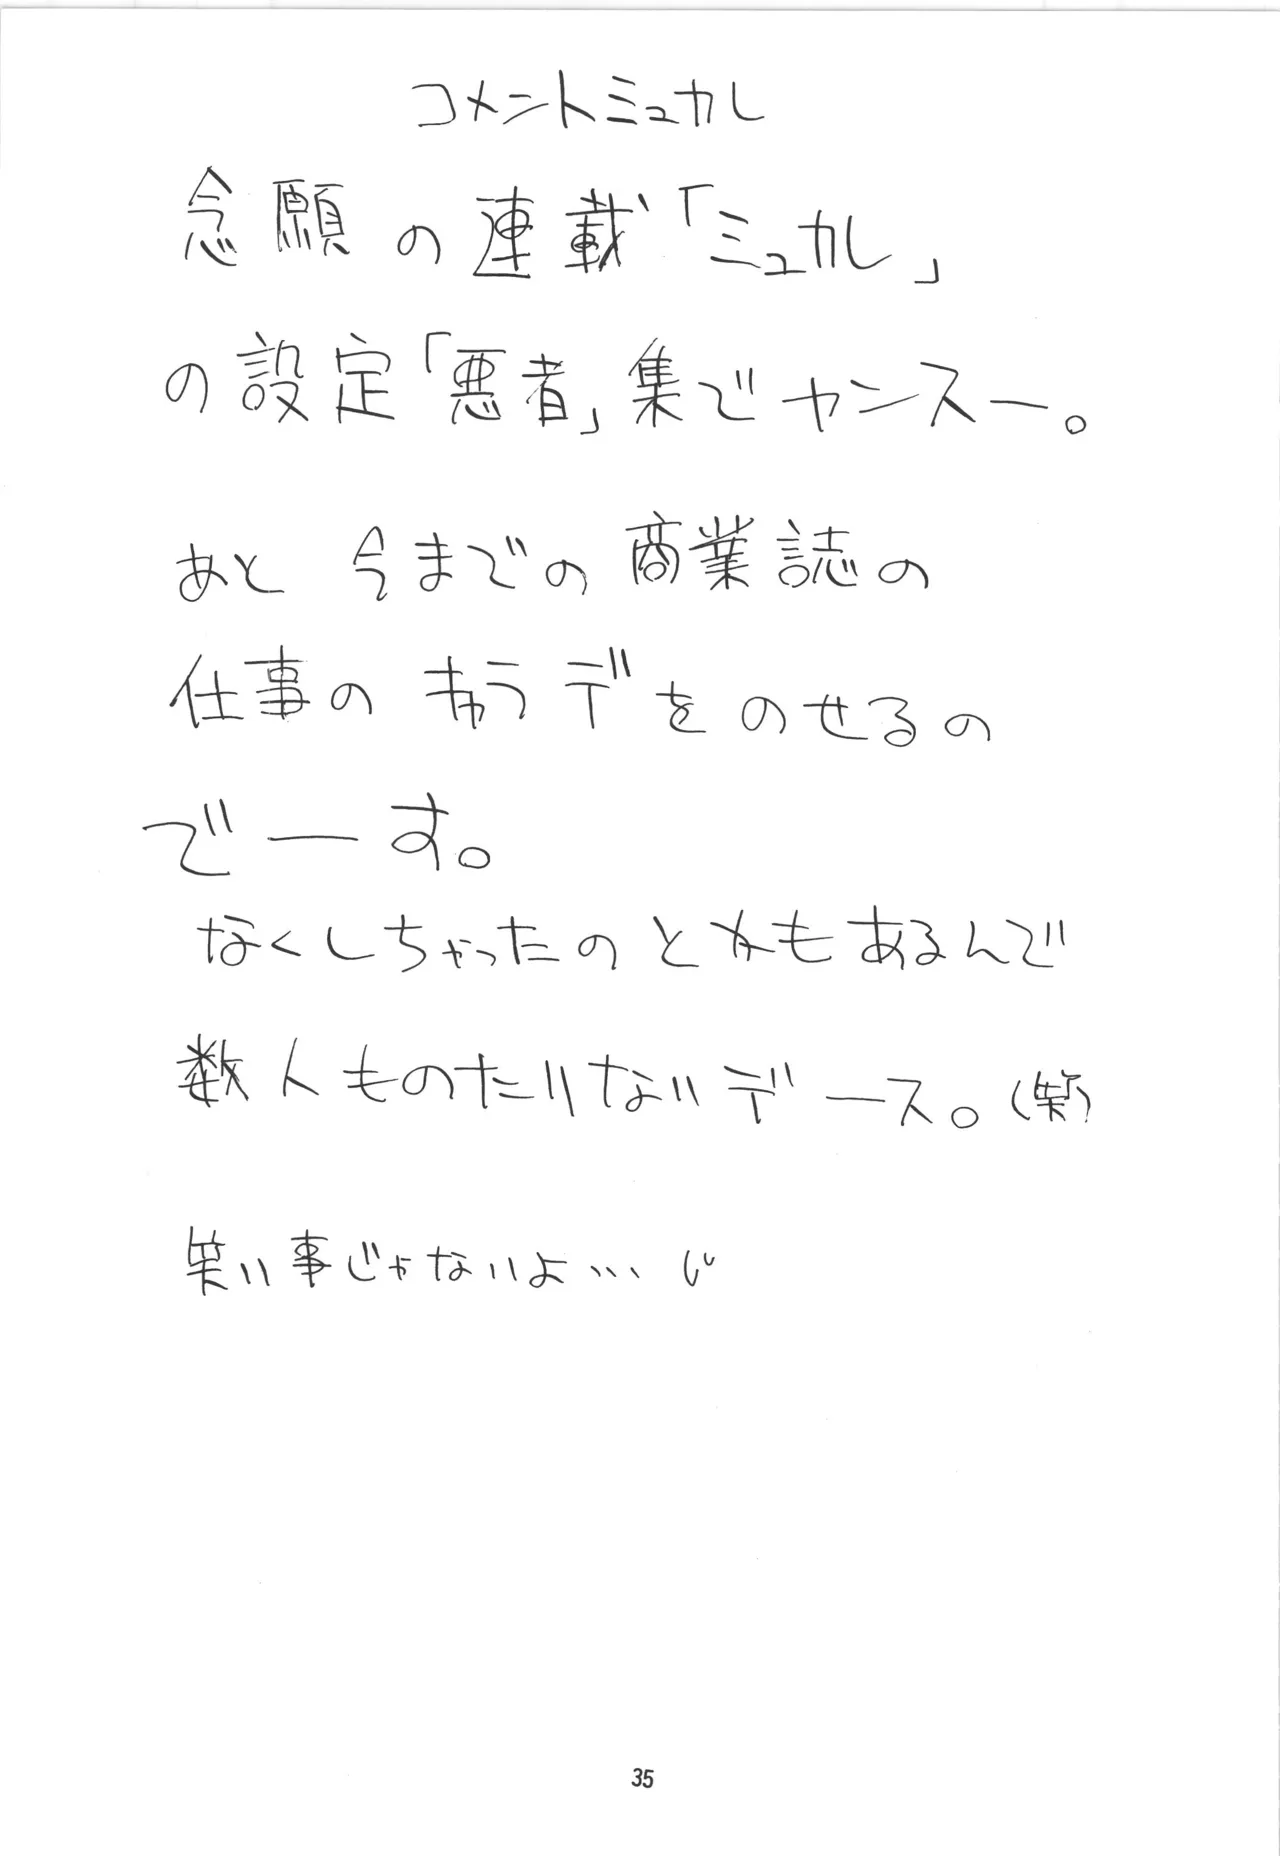 コメントミュカレ
念願の連載「ミュカレ」
の設定「悪者」集でヤンスー。
あと 今までの商業誌の
仕事の キャラデをのせるの
でーす。
なくしちゃったのとかもあるんで
数人ものたりないデース。(笑)
笑い事じゃないよ…
35